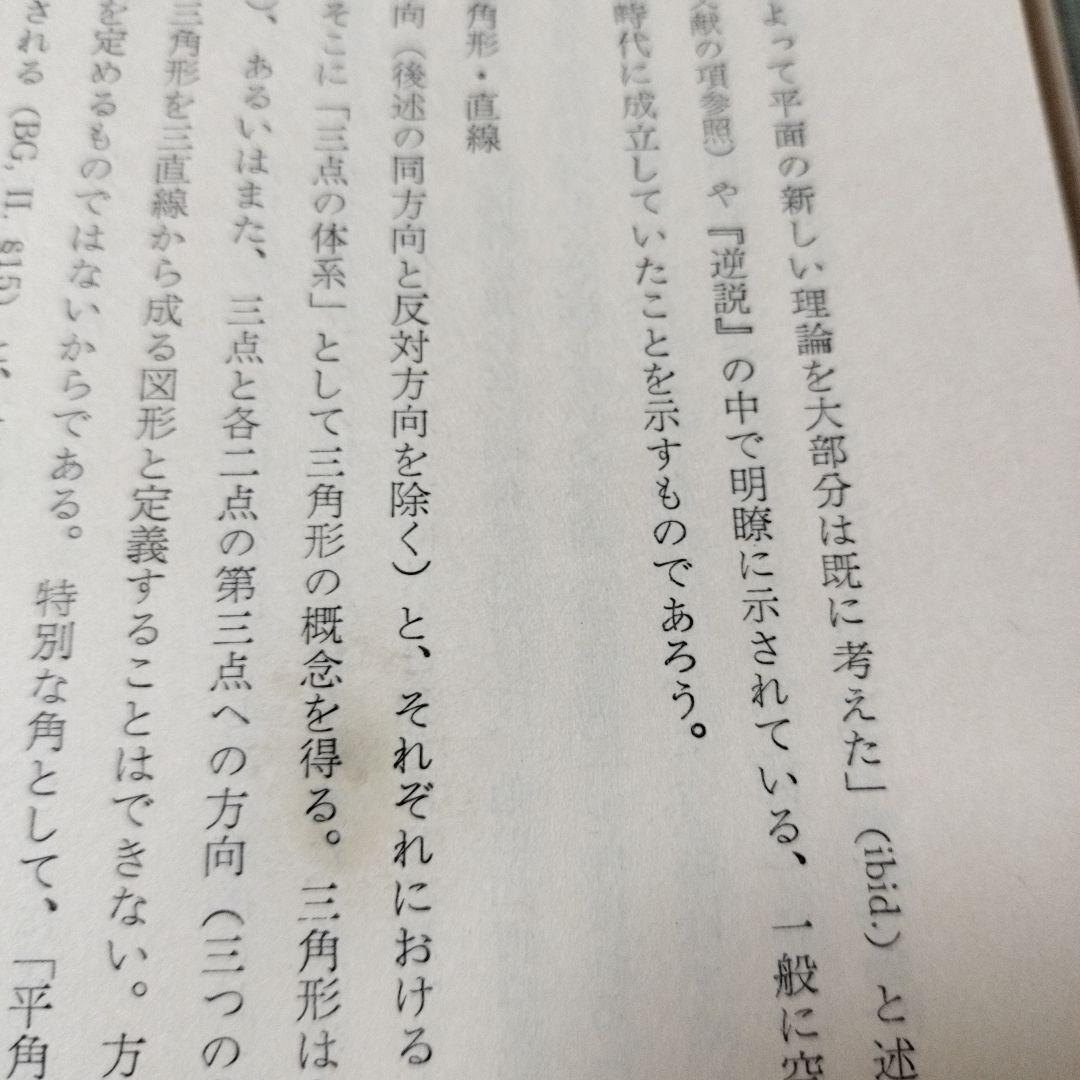 よって平面の新しい理論を大部分は既に考えた」(ibid.) と述
献の項参照) や『逆説』の中で明瞭に示されている、一般に空
時代に成立していたことを示すものであろう。
角形・直線
向 (後述の同方向と反対方向を除く) と、それぞれにおける
そこに「三点の体系」として三角形の概念を得る。三角形は
)、あるいはまた、三点と各二点の第三点への方向 (三つの
三角形を三直線から成る図形と定義することはできない。方
を定めるものではないからである。特別な角として、「平角
される (BG, II. §15)